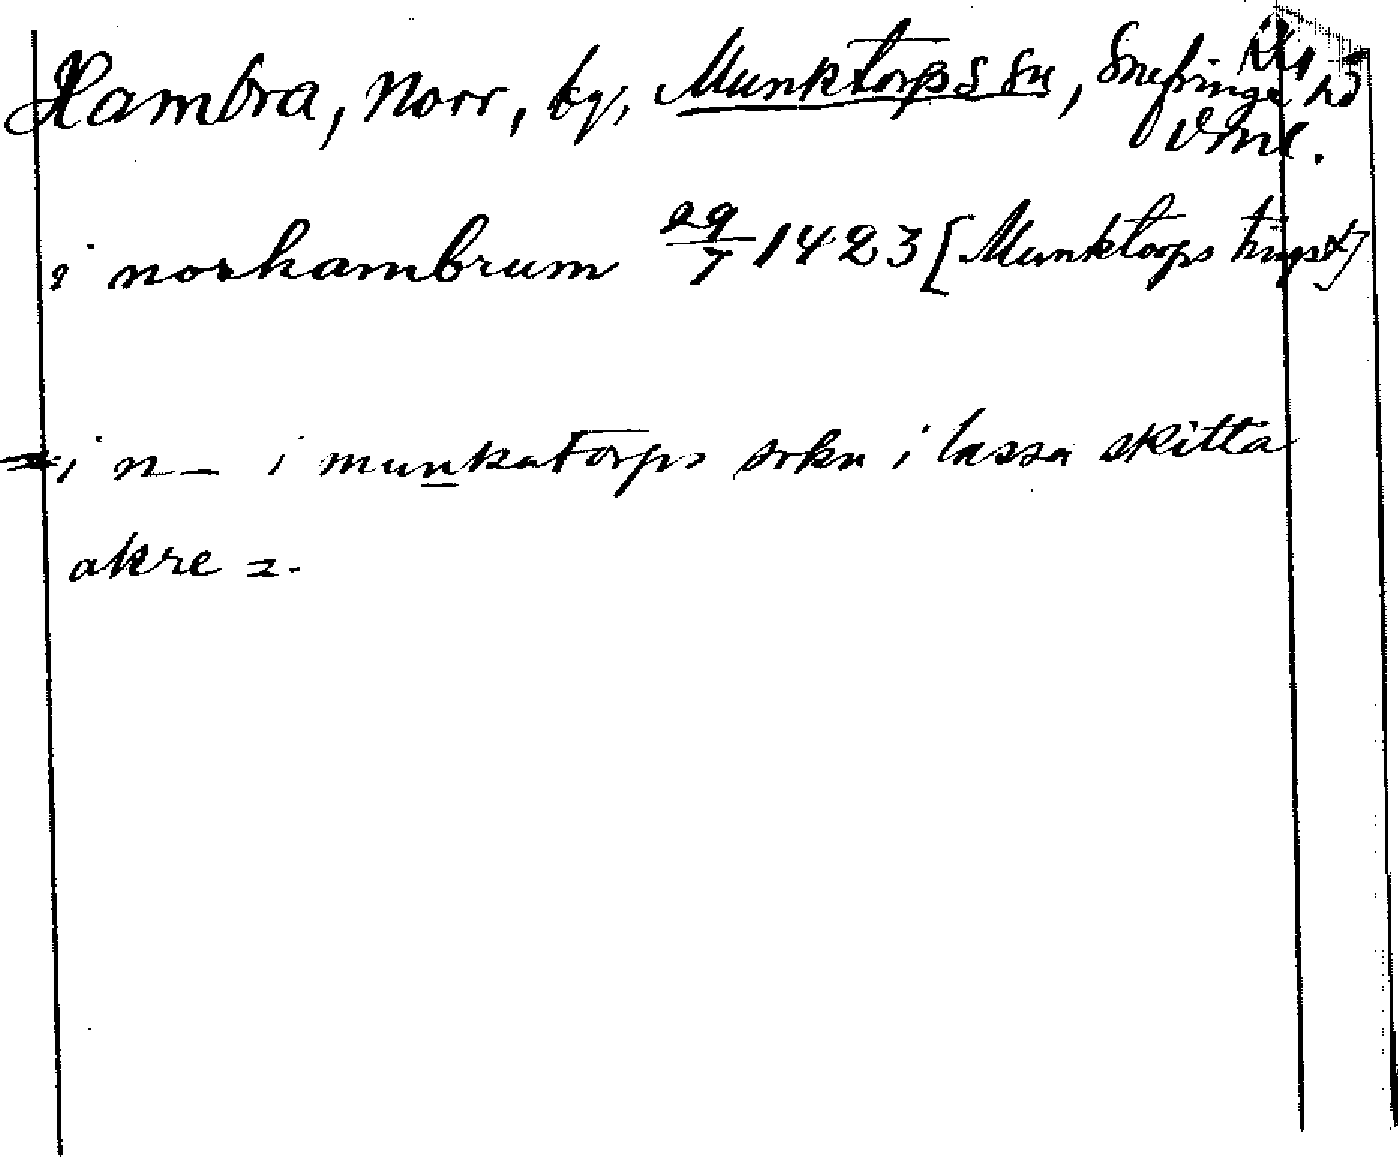 Hambra, Norr, by, Munktorps sn, Snefringe hd
Vml.
i norhambrum 29/7 1423 [Munktorps tingst]
= i n – i munkatorps sokn i lassa skitta
akre =.